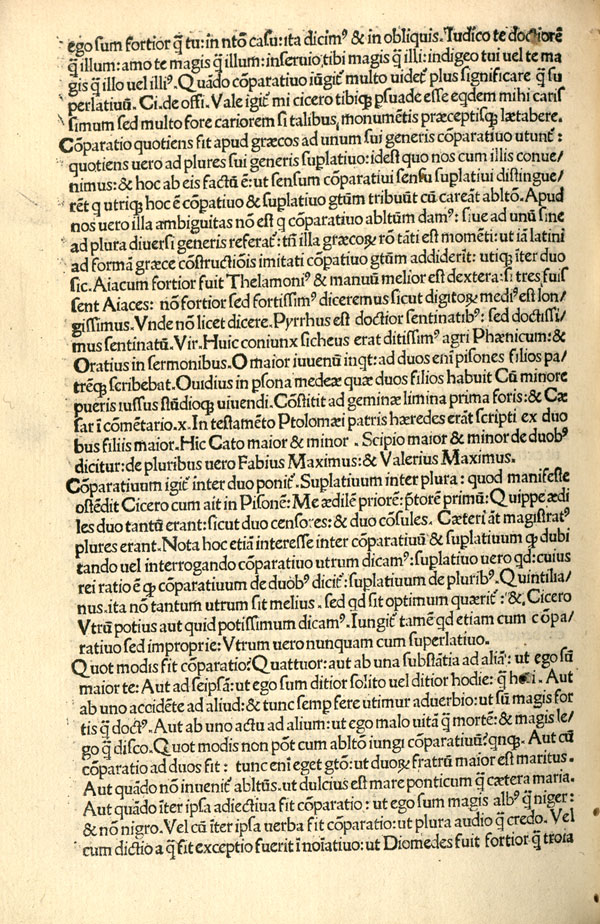 ego sum fortior q̃ tu: in nto͂ casu: ita dicimꝰ & in obliquis. Iudico te doctiorē
q̃ illum: amo te magis q̃ illum: inseruio tibi magis q̃ illi: indigeo tui uel te ma
gis q̃ illo uel illiꝰ. Quādo cōparatiuo iūgit᷑ multo uidet᷑ plus significare q̃ su
perlatiuū. Ci. de offi. Vale igit᷑ mi cicero tibiqꝫ psuade esse eqdem mihi caris
simum sed multo fore cariorem si talibus monumētis præceptisqꝫ lætabere.
Cōparatio quotiens fit apud græcos ad unum sui generis cōparatiuo utunt᷑:
quotiens uero ad plures sui generis suplatiuo: idest quo nos cum illis conue/
nimus: & hoc ab eis factū ē: ut sensum cōparatiui sensu suplatiui distingue/
rēt q utriqꝫ hoc ē cōpatiuo & suplatiuo gtūm tribuūt cū careāt abltō. Apud
nos uero illa ambiguitas nō est q cōparatiuo abltūm damꝰ: siue ad unū siue
ad plura diuersi generis referat᷑: tn̄ illa græcoꝝ rō tāti est momēti: ut iā latini
ad formā græce cōstructiōis imitati cōpatiuo gtūm addiderīt: utiqꝫ īter duo
sic. Aiacum fortior fuit Thelamoniꝰ & manuū melior est dextera: si tres fuis
sent Aiaces: nō fortior sed fortissimꝰ diceremus sicut digitoꝝ mediꝰ est lon/
gissimus. Vnde nō licet dicere. Pyrrhus est doctior sentinatibꝰ: sed doctissi/
mus sentinatū. Vir. Huic coniunx sicheus erat ditissimꝰ agri Phœnicum: &
Oratius in sermonibus. O maior iuuenū inqt: ad duos eni pisones filios pa/
trēqꝫ scribebat. Ouidius in psona medeæ quæ duos filios habuit Cū minore
pueris iussus stūdioqꝫ uiuendi. Cōstitit ad geminæ limina prima foris: & Cæ
sar ī cōmētario. x. In testamēto Ptolomæi patris hæredes erāt scripti ex duo
bus filiis maior. Hic Cato maior & minor. Scipio maior & minor de duobꝰ
dicitur: de pluribus uero Fabius Maximus: & Valerius Maximus.
Cōparatiuum igit᷑ inter duo ponit᷑. Suplatiuum inter plura: quod manifeste
ostēdit Cicero cum ait in Pisonē: Me ædilē priorē: p̄torē primū: Quippe ædi
les duo tantū erant: sicut duo censores: & duo cōsules. Cæteri āt magistratꝰ
plures erant. Nota hoc etiā interesse inter cōparatiuū & suplatiuum qꝫ dubi
tando uel interrogando cōparatiuo utrum dicamꝰ: suplatiuo uero qd: cuius
rei ratio ē qꝫ cōparatiuum de duobꝰ dicit᷑: suplatiuum de pluribꝰ. Quintilia/
nus. ita nō tantum utrum sit melius. sed qd sit optimum quærit᷑: & Cicero
Vtrū potius aut quid potissimum dicamꝰ. Iungit᷑ tamē qd etiam cum cōpa/
ratiuo sed improprie: Vtrum uero nunquam cum superlatiuo.
Quot modis fit cōparatio? Quattuor: aut ab una substātia ad aliā: ut ego sū
maior te: Aut ad seipsā: ut ego sum ditior solito uel ditior hodie: q̃ heri. Aut
ab uno accidēte ad aliud: & tunc semp fere utimur aduerbio: ut sū magis for
tis q̃ doctꝰ. Aut ab uno actu ad alium: ut ego malo uitā q̃ mortē: & magis le/
go q̃ disco. Quot modis non pōt cum abltō iungi cōparatiuū? qnqꝫ. Aut cū
cōparatio ad duos fit: tunc eni eget gtō: ut duoꝝ fratrū maior est maritus.
Aut quādo nō inuenit᷑ abltūs. ut dulcius est mare ponticum q̃ cætera maria.
Aut quādo īter ipsa adiectiua fit cōparatio: ut ego sum magis albꝰ q̃ niger:
& nō nigro. Vel cū īter ipsa uerba fit cōparatio: ut plura audio q̃ credo. Vel
cum dictio a q̃ fit exceptio fuerit ī noīatiuo: ut Diomedes fuit fortior q̃ troia